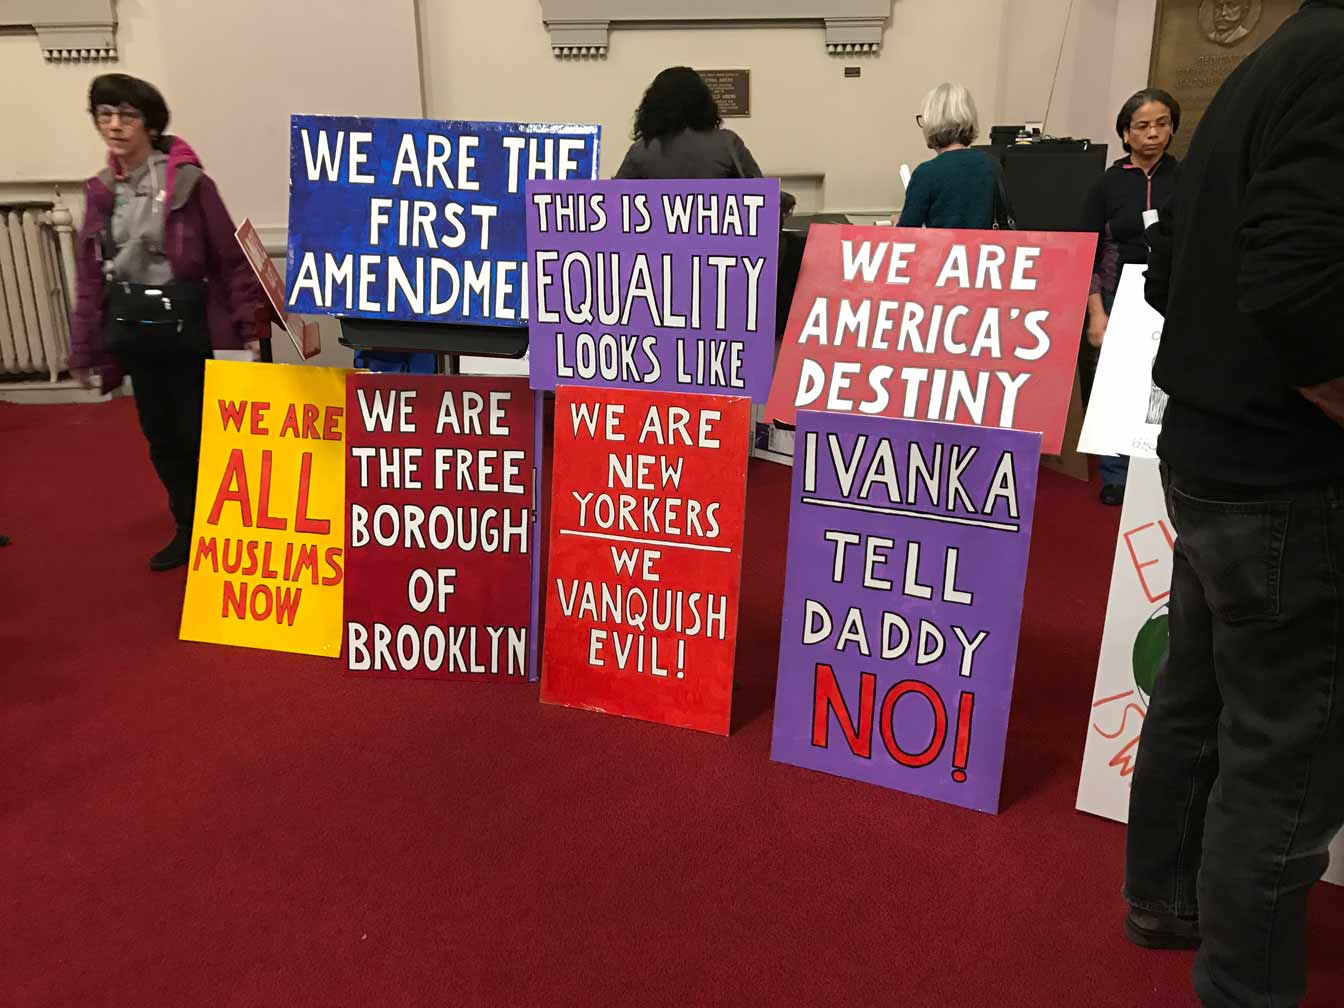 WE ARE THE
FIRST
AMENDMEN
THIS IS WHAT
EQUALITY
LOOKS LIKE
WE ARE
AMERICA'S
DESTINY
WE ARE
ALL
MUSLIMS
NOW
WE ARE
THE FREE
BOROUGH
OF
BROOKLYN
WE ARE
NEW
YORKERS
WE
VANQUISH
EVIL!
IVANKA
TELL
DADDY
NO!
IS